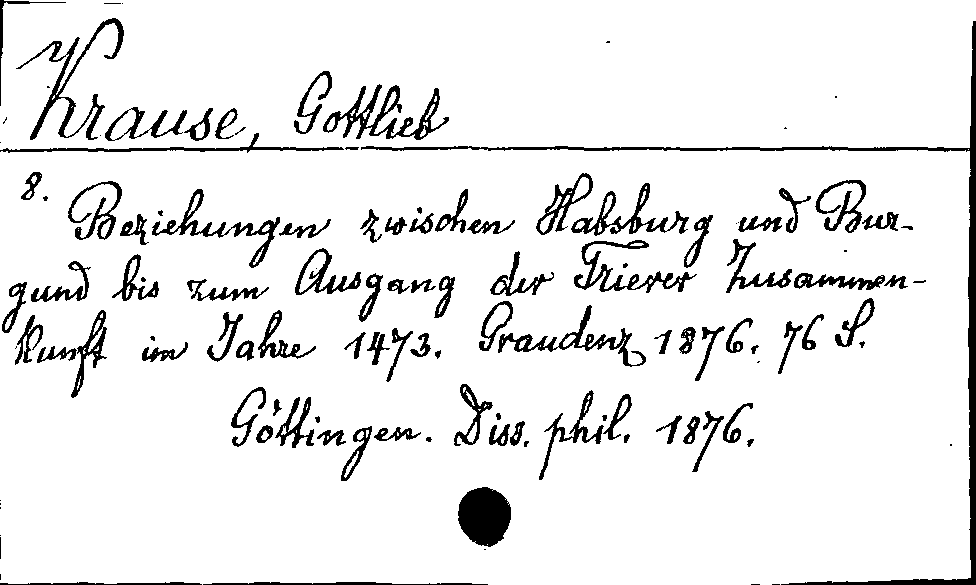 Krause, Gottlieb
8.
Beziehungen zwischen Habsburg und Bur-
gund bis zum Ausgang der Trierer Zusammen-
kunft im Jahre 1473. Graudenz 1876. 76 S.
Göttingen. Diss. phil. 1876.